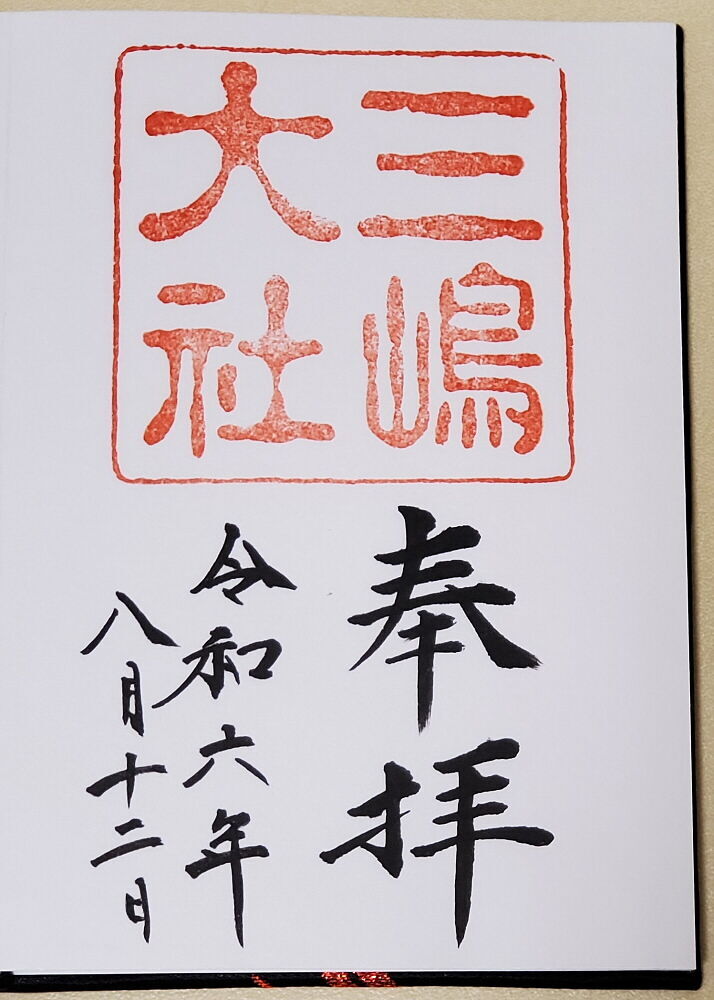 三嶋
大社
奉拝
令和六年
八月十二日